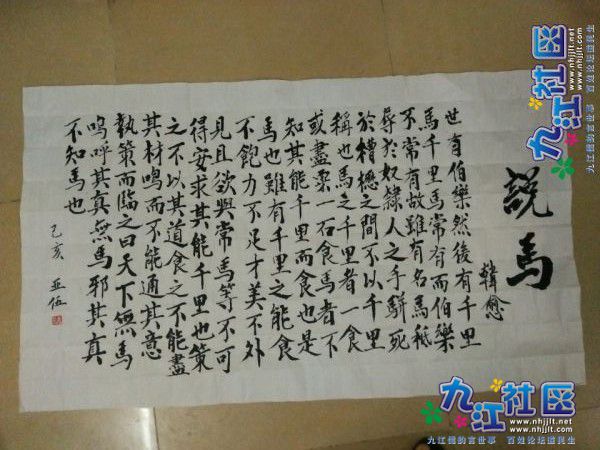 說馬
韓愈
世有伯樂然後有千里
馬千里馬常有而伯樂
不常有故雖有名馬秪
辱於奴隸人之手駢死
於槽櫪之間不以千里
稱也馬之千里者一食
或盡粟一石食馬者不
知其能千里而食也是
馬也雖有千里之能食
不飽力不足才美不外
見且欲與常馬等不可
得安求其能千里也策
之不以其道食之不能盡
其材鳴而不能通其意
執策而臨之曰天下無馬
嗚呼其真無馬邪其真
不知馬也
己亥 亚伍
九江社区
www.nhjjlt.net
www.nhjjlt.com
九江儒韵言世事 百姓论坛道民生
九江社区
www.nhjjlt.net
www.nhjjlt.com
九江儒韵言世事 百姓论坛道民生